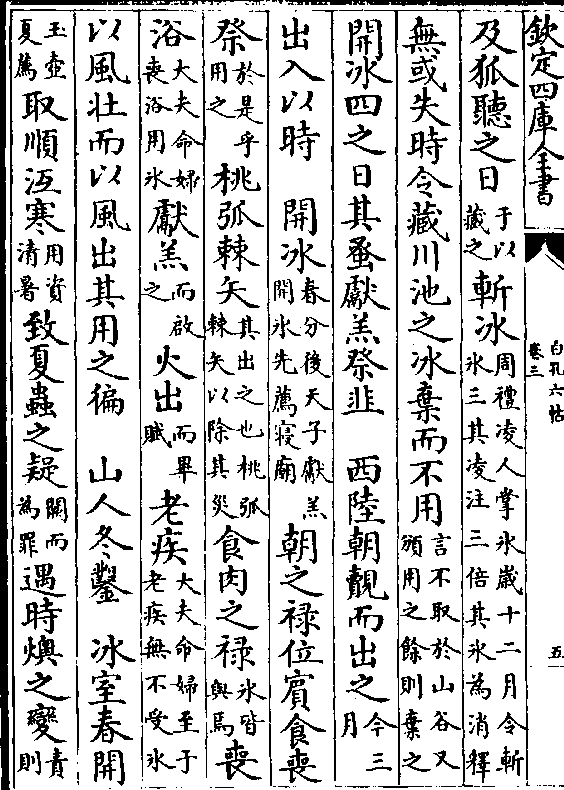 欽定四庫全書
白孔六帖
卷三
五
及狐聽之日于以藏之斬冰周禮凌人掌氷歲十二月令斬氷三其凌注三倍其氷為消釋
無或失時令藏川池之冰棄而不用言不取於山谷又頒用之餘則棄之
開冰四之日其蚤獻羔祭韭　西陸朝覿而出之今三月
出入以時　開冰春分後天子獻羔開氷先薦寢廟朝之祿位賓食喪
祭於是乎用之桃弧棘矢其出之也桃弧棘矢以除其災食肉之祿氷皆與焉喪
浴大夫命婦喪浴用氷獻羔而啟之火出而畢賦老疾大夫命婦至于老疾無不受氷
以風壯而以風出其用之徧　山人冬鑿　冰室春開
玉壺夏薦取順沍寒用資清暑致夏蟲之疑闕而為罪遇時燠之變責則